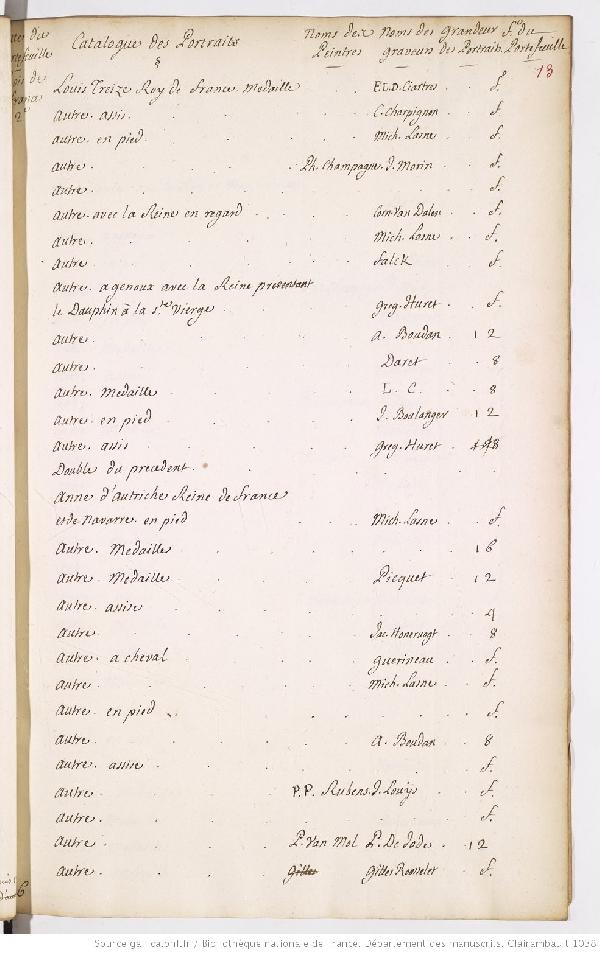 Catalogue des Portraits
Noms des Peintres
Noms des graveurs
Grandeur des Portraits
f.º du Portefeuille
13
Louis Treize Roy de france Medaille . . F.L.D. Ciartres . f.
autre . assis . C. Charpignon . f.
autre . en pied . Mich. Lasne . f.
autre . Ph. Champagne . J. Morin . f.
autre . f.
autre . avec la Reine en regard . Corn. Van Dalen . f.
autre . Mich. Lasne . f.
autre . falck . f.
autre . a genoux avec la Reine presentant
le Dauphin à la s.te Vierge . greg. Huret . f.
autre . a. Boudan . 12
autre . Daret . 8
autre . Medaille . L. C. . 8
autre . en pied . J. Boulanger . 12
autre . assis . greg. Huret . 8
Double du precedent .
anne d'autriche Reine de france
et de Navarre . en pied . Mich. Lasne . f.
autre . Medaille . 16
autre . Medaille . Picquet . 12
autre . assise . 4
autre . Jac. Honervogt . 8
autre . a cheval . guerineau . f.
autre . Mich. Lasne . f.
autre . en pied . f.
autre . a. Boudan . 8
autre . assise . f.
autre . P.P. Rubens . J. Louys . f.
autre . f.
autre . P. Van Mol . P. De Jode . 12
autre . Gilles gilles Rousselet . f.
Source gallica.bnf.fr / Bibliothèque nationale de France. Département des manuscrits. Clairambault 1038